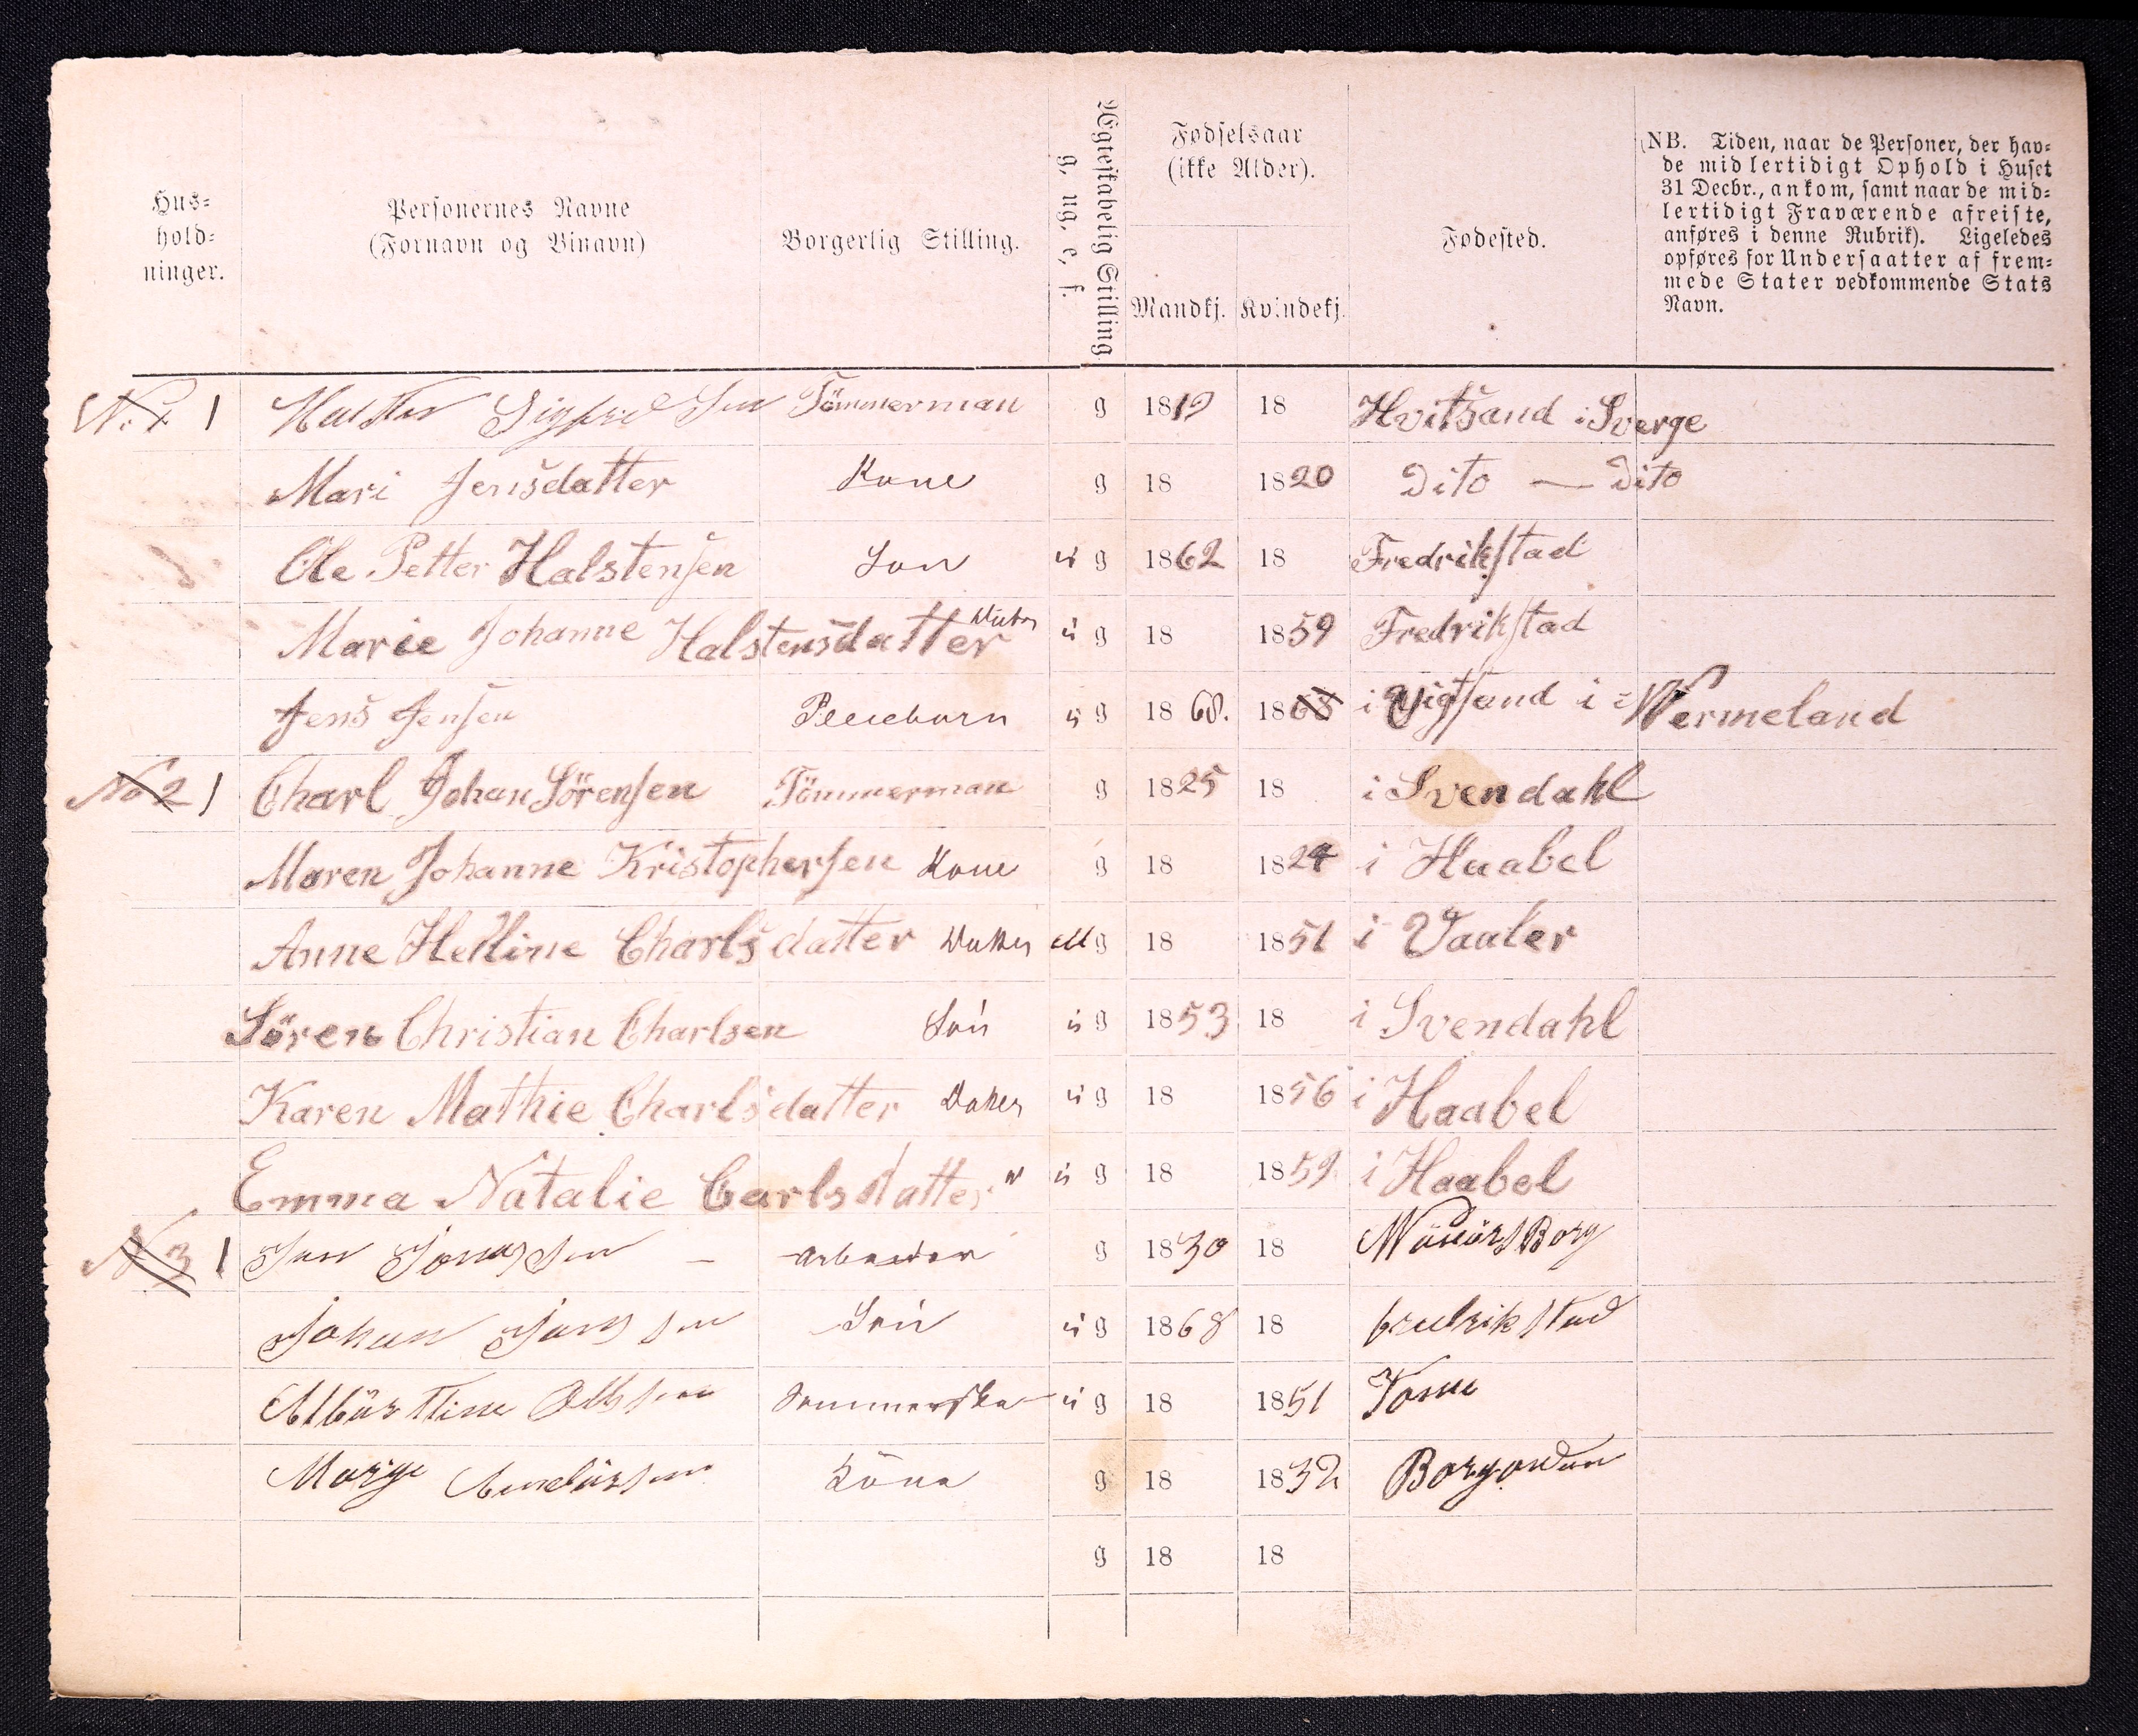 Hus-
hold-
ninger.
Personernes Navne
(Fornavn og Binavn)
Borgerlig Stilling.
Ægteskabelig Stilling
g, ug, e, f.
Fødselsaar
(ikke Alder).
Mandkj. Kvindekj.
Fødested.
(NB. Tiden, naar de Personer, der hav-
de midlertidigt Ophold i Huset
31 Decbr., ankom, samt naar de mid-
lertidigt Fraværende afreiste,
anføres i denne Rubrik). Ligeledes
opføres for Undersaatter af frem-
mede Stater vedkommende Stats
Navn.
1 Tömmerman g 1819 18 Hvitsand i Sverge
Mari Jensdatter Kone g 18 1820 Dito — Dito
Ole Petter Halstensen Son ug 1862 18 Fredrikstad
Marie Johanne Halstensdatter ug 18 1859 Fredrikstad
Jens Jensen Pleiebarn ug 1868. 1868 i Vigsand i Wermeland
No 2 1 Charl Johan Sörensen Tömmerman g 1825 18 i Svendahl
Maren Johanne Kristophersen Kone g 18 1824 i Haabel
Anne Helline Charlsdatter Datter ug 18 1851 i Vaaler
Sören Christian Charlsen Sön ug 1853 18 i Svendahl
Karen Mathie Charlsdatter Datter ug 18 1856 i Haabel
Emma Natalie Carlsdatter " ug 18 1859 i Haabel
N 3 1 — Arbeider g 1830 18
Johan Sön ug 1868 18 fredrikstad
ug 18 1851
Köna g 18 1832
g 18 18